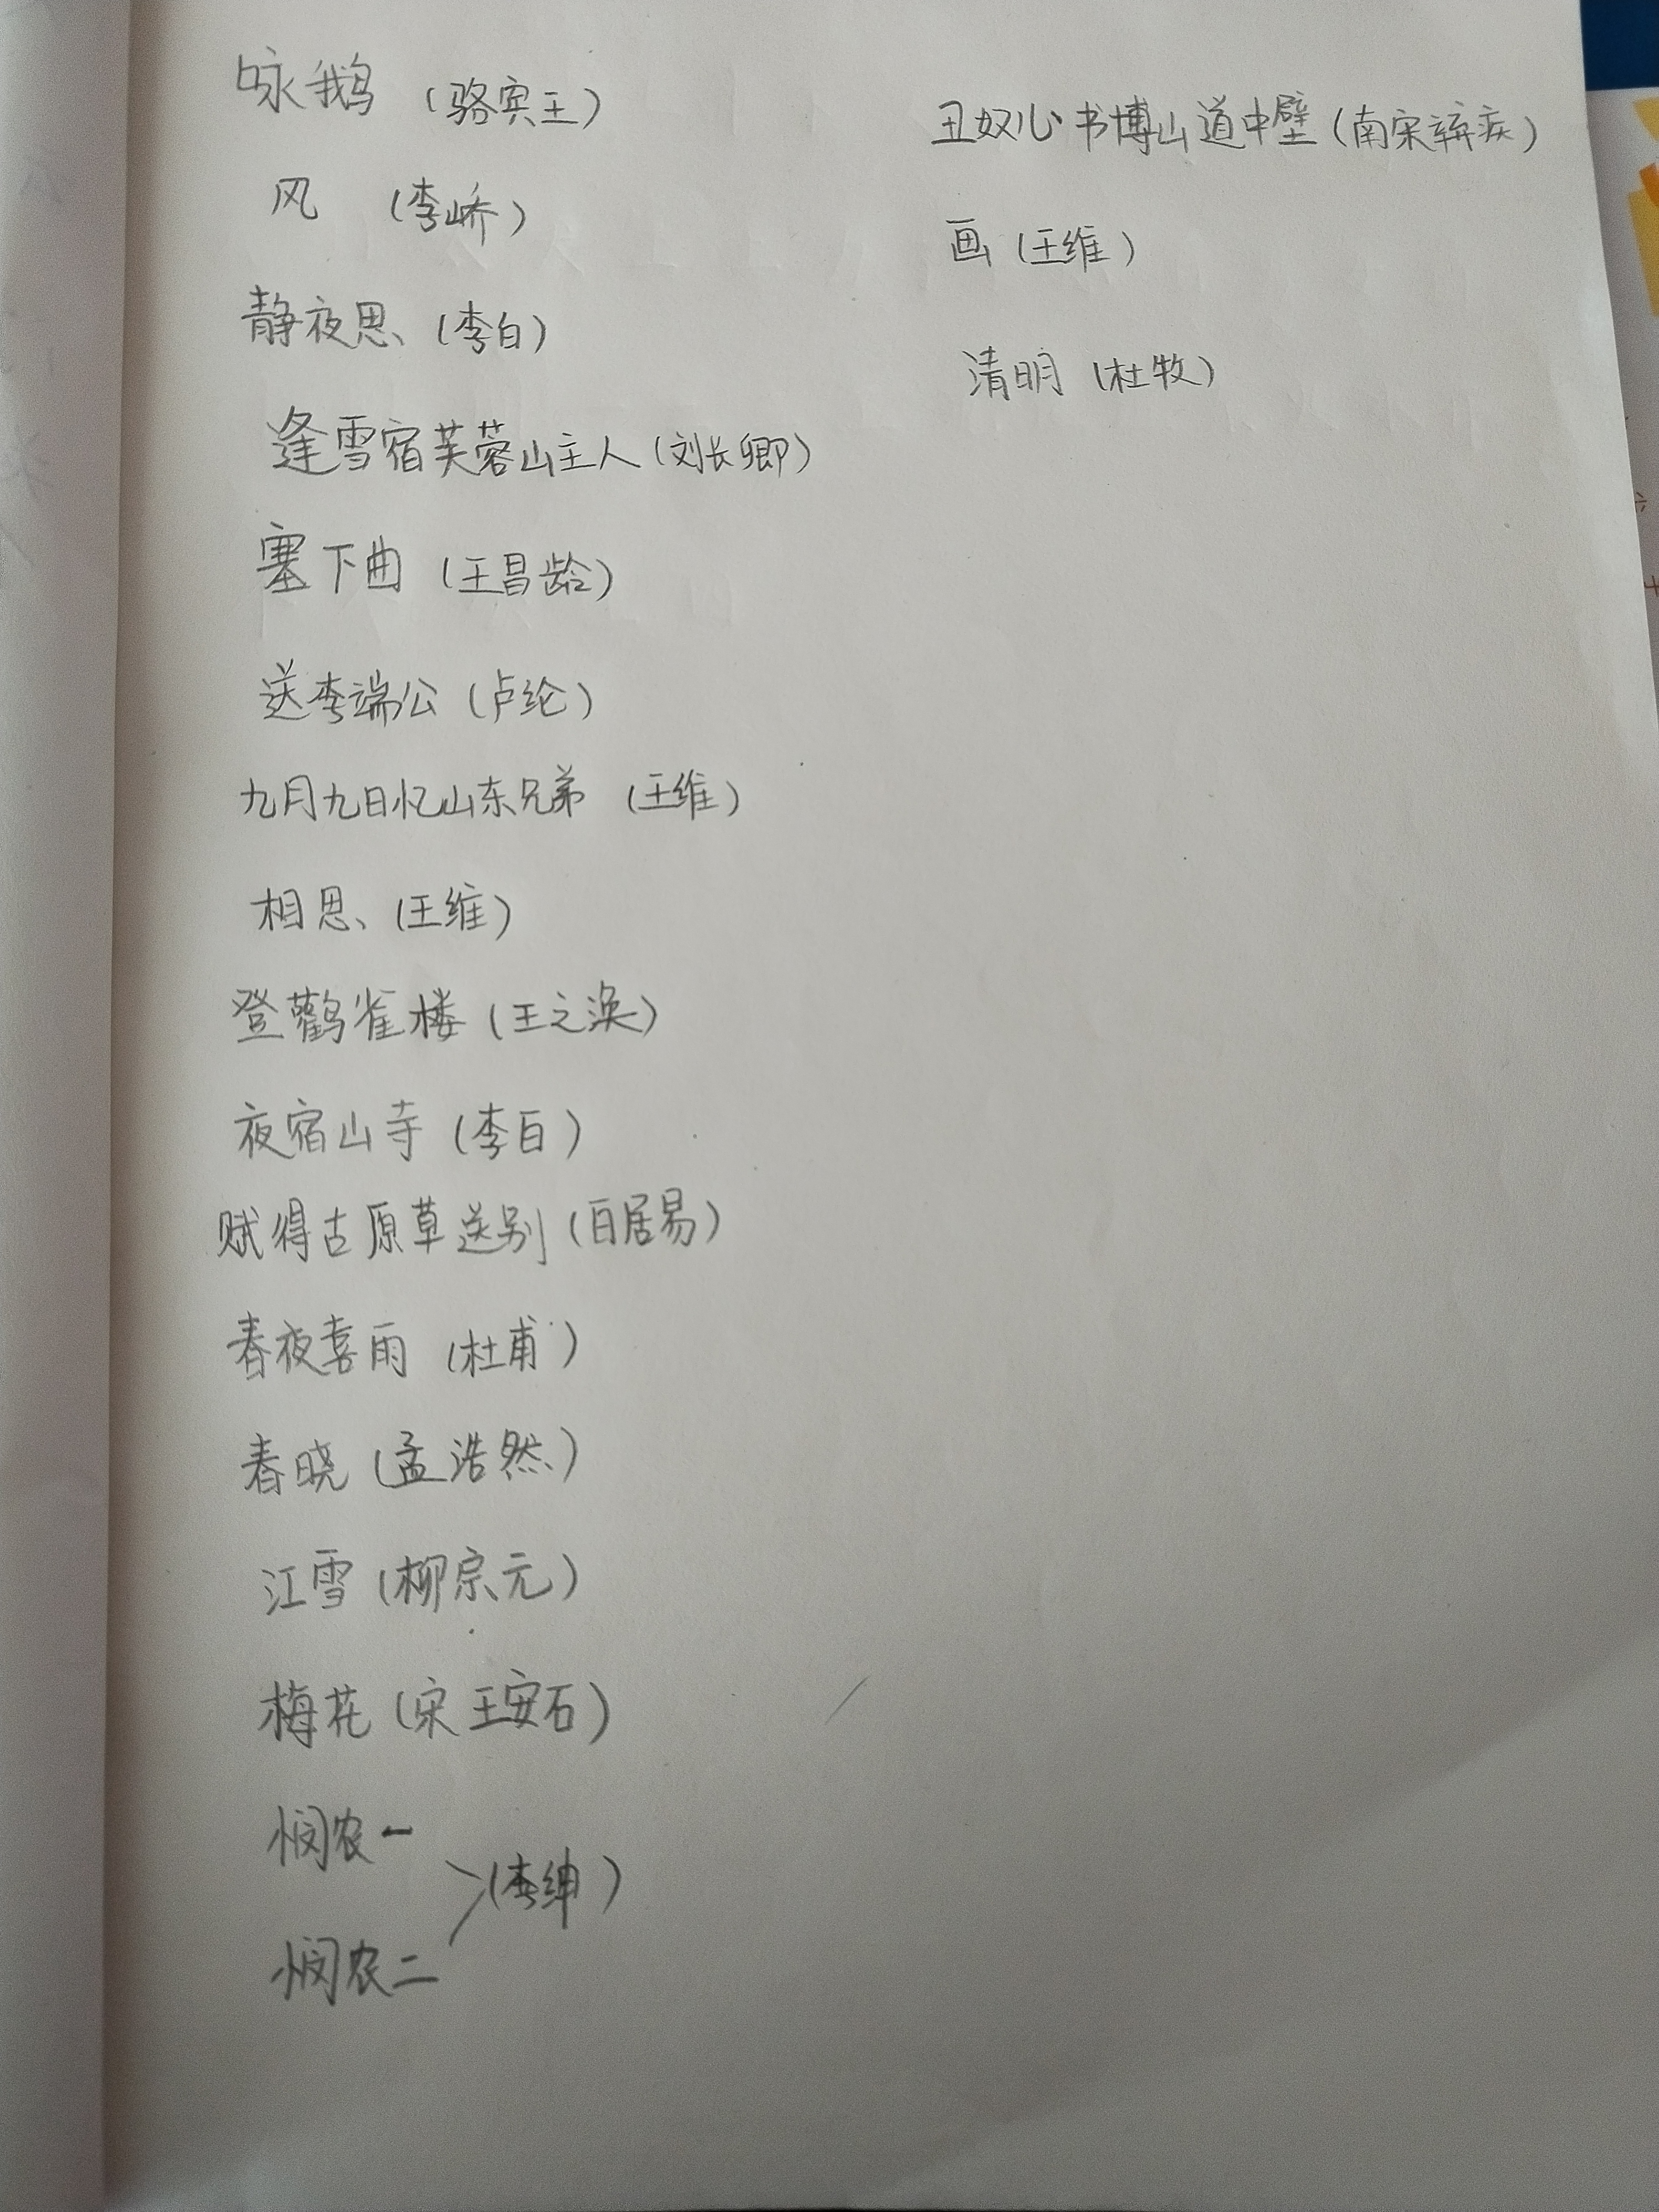 咏鹅 (骆宾王)
风 (李峤)
静夜思 (李白)
逢雪宿芙蓉山主人 (刘长卿)
塞下曲 (王昌龄)
送李端公 (卢纶)
九月九日忆山东兄弟 (王维)
相思 (王维)
登鹳雀楼 (王之涣)
夜宿山寺 (李白)
赋得古原草送别 (白居易)
春夜喜雨 (杜甫)
春晓 (孟浩然)
江雪 (柳宗元)
梅花 (宋 王安石)
悯农一
(李绅)
悯农二
丑奴儿 书博山道中壁 (南宋辛弃疾)
画 (王维)
清明 (杜牧)